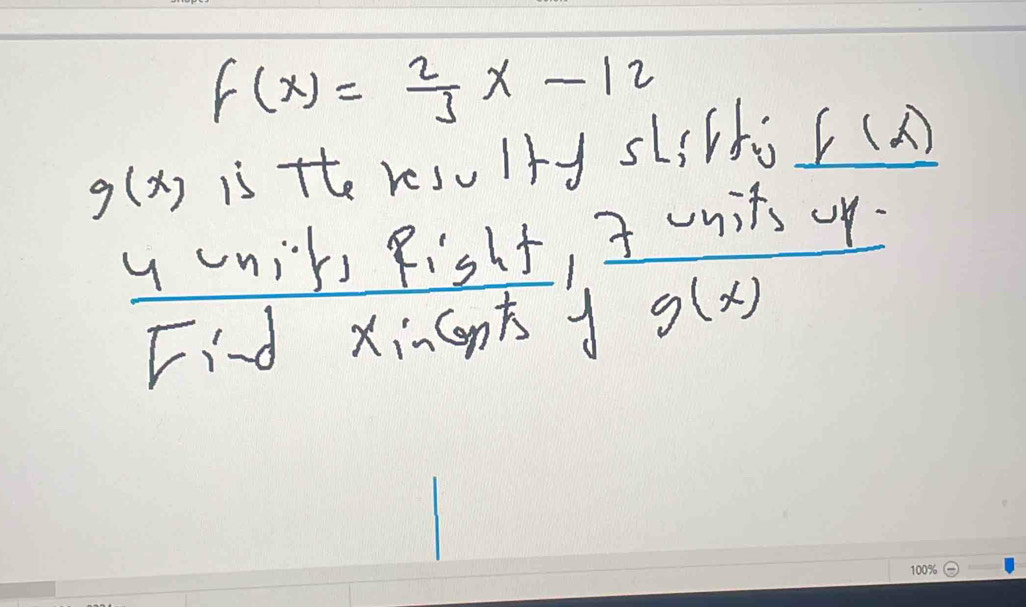 f(x) = 2/3 x - 12
g(x) is the result of shifting f(x)
4 units Right, 7 units up.
Find x incepts of g(x)
100%